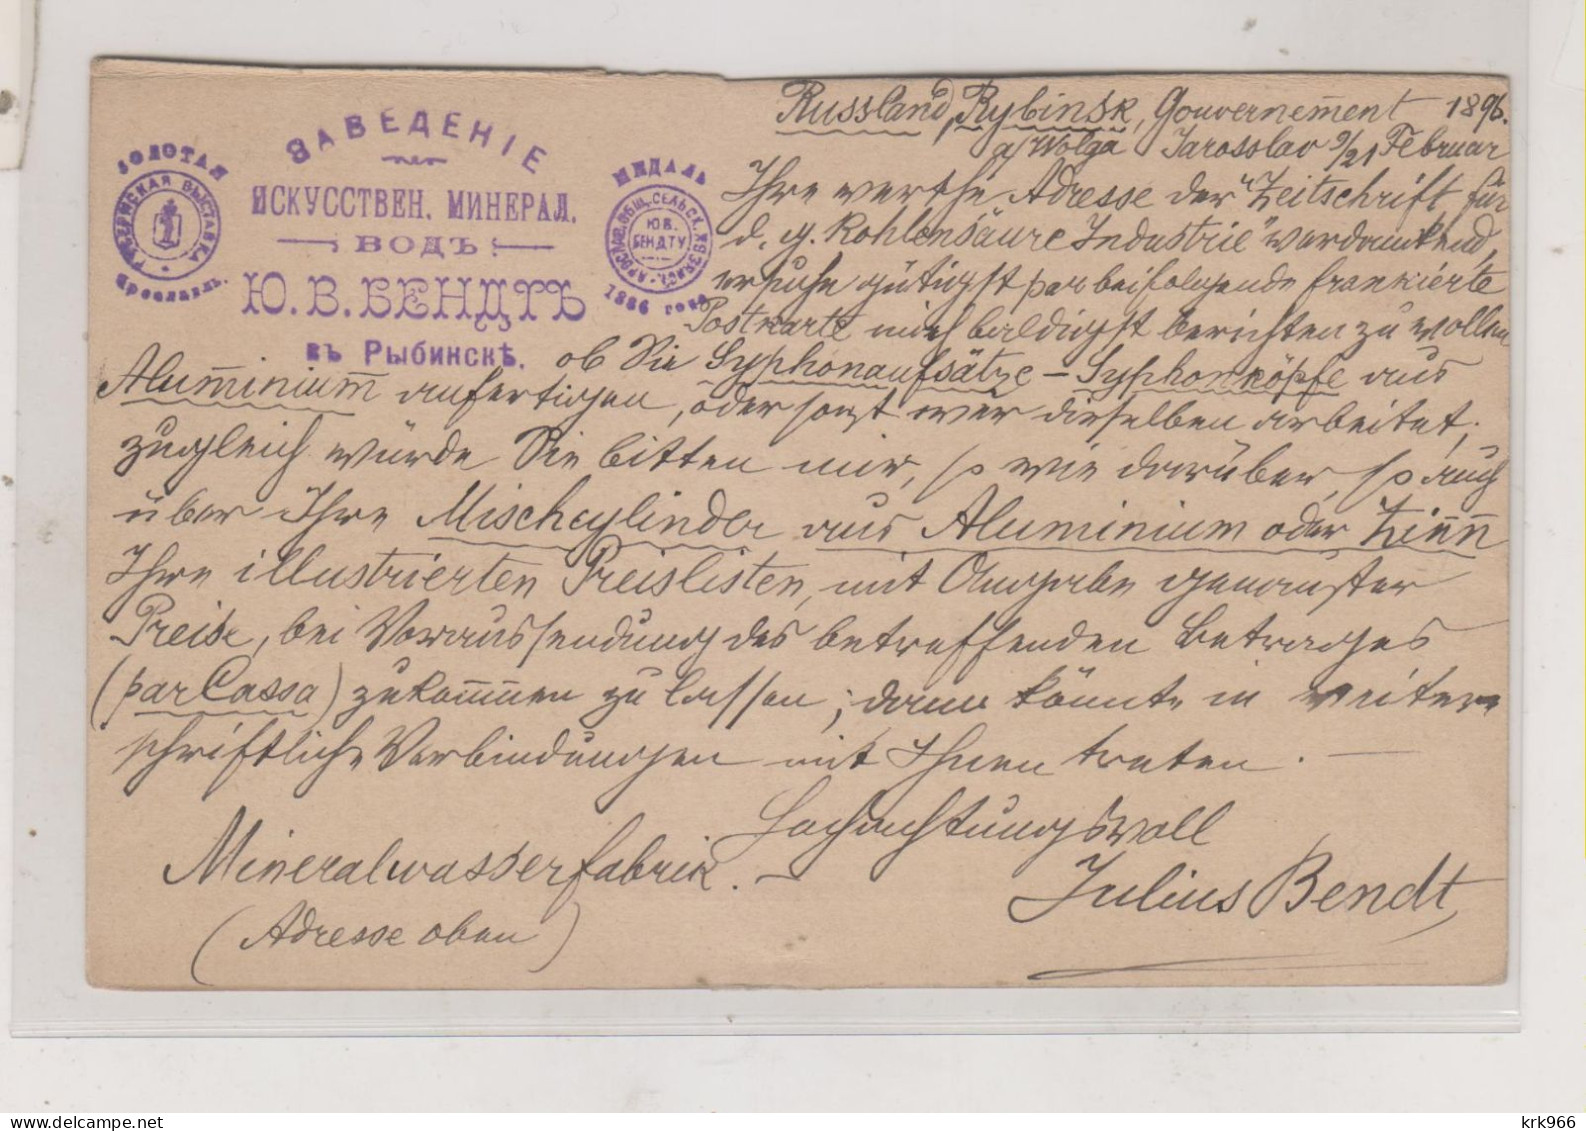 ЗАВЕДЕНІЕ
ИСКУССТВЕН. МИНЕРАЛ.
ВОДЪ
Ю.В.БЕНДТЪ
въ Рыбинскѣ.
ЗОЛОТАЯ
ВЫСТАВКА
Ярославль.
МЕДАЛЬ
ОБЩ. СЕЛЬСК. ХОЗЯЙСТ.
Ю.В.
БЕНДТУ
1886 года
Russland, Rybinsk, Gouvernem̄ent 1896.
a/Wolga Jarosslav 9/21 Februar
Ihre werthe Adresse der "Zeitschrift für
d. g. Kohlensäure Industrie" verdankend,
ersuche gütigst par beifolgende frankierte
Postkarte mich baldigst berichten zu wollen
ob Sie Syphonaufsätze – Syphonköpfe aus
Alum̄inium̄ anfertigen, oder sonst wer dieselben arbeitet;
zugleich würde Sie bitten mir, so wie darüber, so auch
über Ihre Mischcylinder aus Aluminium oder Zin̄n̄
Ihre illustrierten Preislisten, mit Angabe genauster
Preise, bei Voraussendung des betreffenden Betrages
(par Cassa) zukom̄m̄en zu lassen; dann könnte in weitere
schriftliche Verbindungen mit Ihnen treten. —
Hochachtungsvoll
Mineralwasserfabrik. — Julius Bendt
(Adresse oben)
krk966